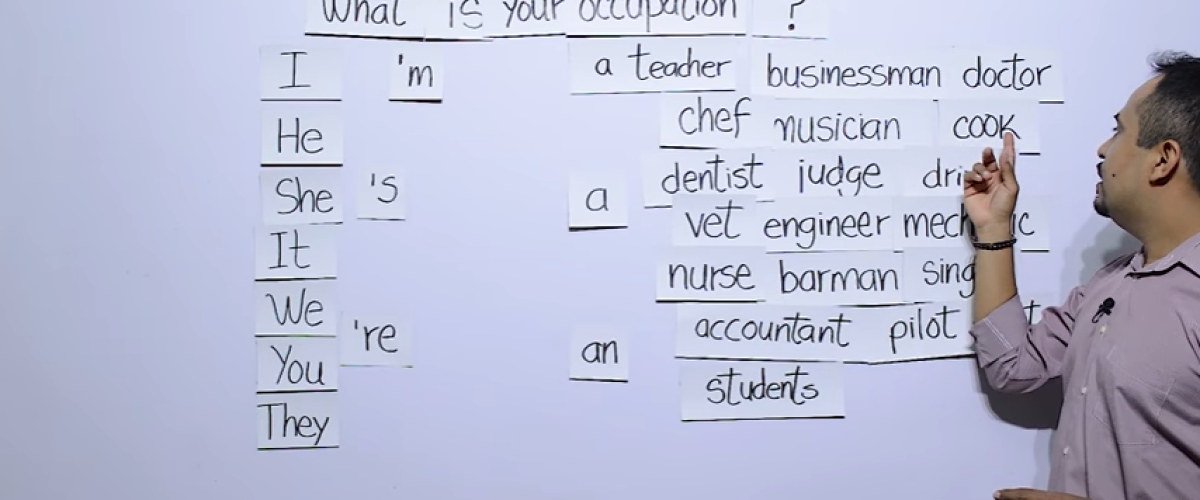 What is your occupation ?
I 'm a teacher businessman doctor
He chef musician cook
She 's a dentist judge
It vet engineer
We nurse barman
You 're an accountant pilot
They students